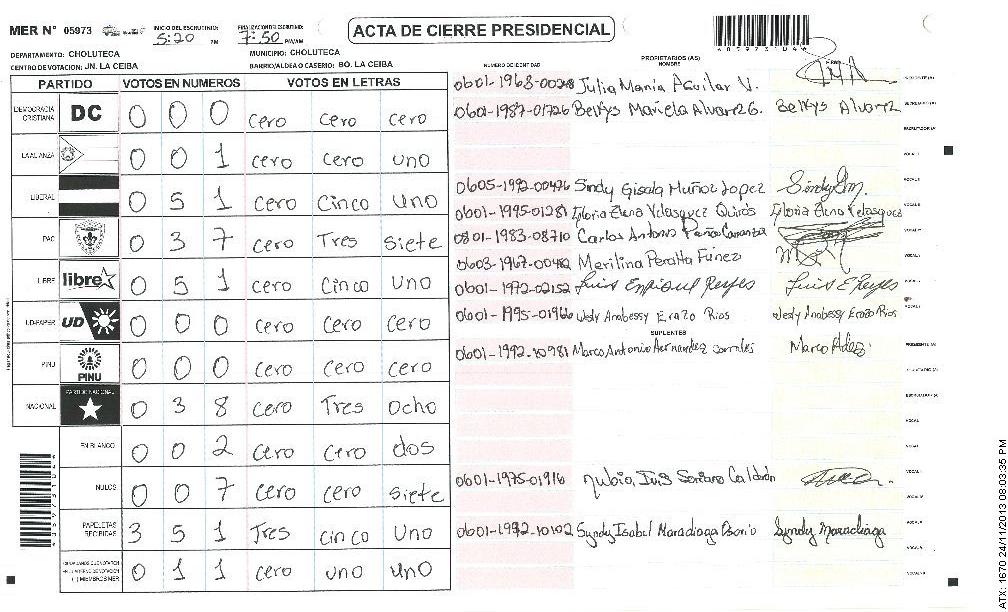 MER N° 05973
INICIO DEL ESCRUTINIO: 5:20 PM
FINALIZACION DEL ESCRUTINIO: 7:50 PM/AM
ACTA DE CIERRE PRESIDENCIAL
DEPARTAMENTO: CHOLUTECA
MUNICIPIO: CHOLUTECA
CENTRO DE VOTACION: JN. LA CEIBA
BARRIO/ALDEA O CASERIO: BO. LA CEIBA
NUMERO DE IDENTIDAD
PROPIETARIOS (AS)
NOMBRE
FIRMA
PARTIDO VOTOS EN NUMEROS VOTOS EN LETRAS
DEMOCRACIA CRISTIANA DC 0 0 0 cero cero cero
LA ALIANZA 0 0 1 cero cero uno
LIBERAL 0 5 1 cero cinco uno
PAC 0 3 7 cero Tres siete
LIBRE libre 0 5 1 cero cinco uno
UD-FAPER UD 0 0 0 cero cero cero
PINU PINU 0 0 0 cero cero cero
NACIONAL PARTIDO NACIONAL 0 3 8 cero Tres ocho
EN BLANCO 0 0 2 cero cero dos
NULOS 0 0 7 cero cero siete
PAPELETAS RECIBIDAS 3 5 1 Tres cinco uno
0 1 1 cero uno uno
0601-1963-00248 Julia Maria Aguilar V.
0601-1987-01726 Belkys Mariela Alvarez G. Belkys Alvarez
0605-1992-00476 Sindy Gisela Muñoz Lopez
0601-1995-01281 Gloria Elena Velasquez Quirós Gloria Elena Velasquez
0801-1983-08710 Carlos Antonio
0603-1967-00482 Merilina Peralta Funez
0601-1972-02152 Luis Enrique Reyes Luis E Reyes
0601-1995-01966 Wesly Anabessy Erazo Rios Wesly Anabessy Erazo Rios
SUPLENTES
0601-1992-10981 Marco Antonio Hernandez
0601-1975-01916 Nubia Iris Soriano Calderón
0601-1992-10102 Syndy Isabel Maradiaga Osorio Syndy Maradiaga
ATX: 1670 24/11/2013 08:03:35 PM